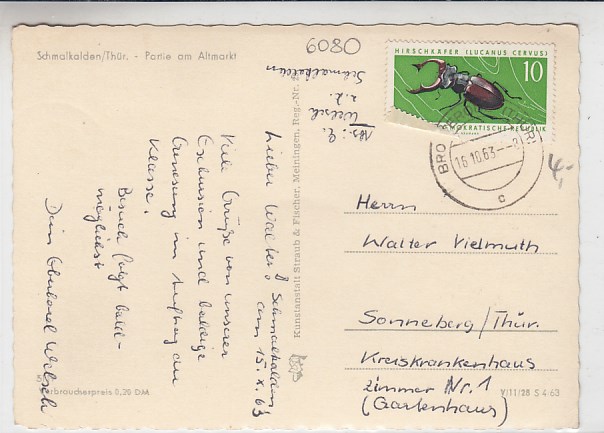 6080
Schmalkalden/Thür. - Partie am Altmarkt
HIRSCHKÄFER (LUCANUS CERVUS)
10
DEMOKRATISCHE REPUBLIK
BRO
16.10.63
c
Abs.: G. Welsch
z.Z.
Schmalkalden
Schmalkalden
am 15.X.63
Lieber Walter!
Viele Grüße von unserer
Exkursion und baldige
Genesung im Auftrag der
Klasse.
Besuch folgt bald-
möglichst
Dein Eberhard Welsch
Kunstanstalt Straub & Fischer, Meiningen, Reg.-Nr.
Herrn
Walter Vielmuth
Sonneberg/Thür.
Kreiskrankenhaus
Zimmer Nr. 1
(Gartenhaus)
Verbraucherpreis 0,20 DM
V/11/28 S 4/63
4,-